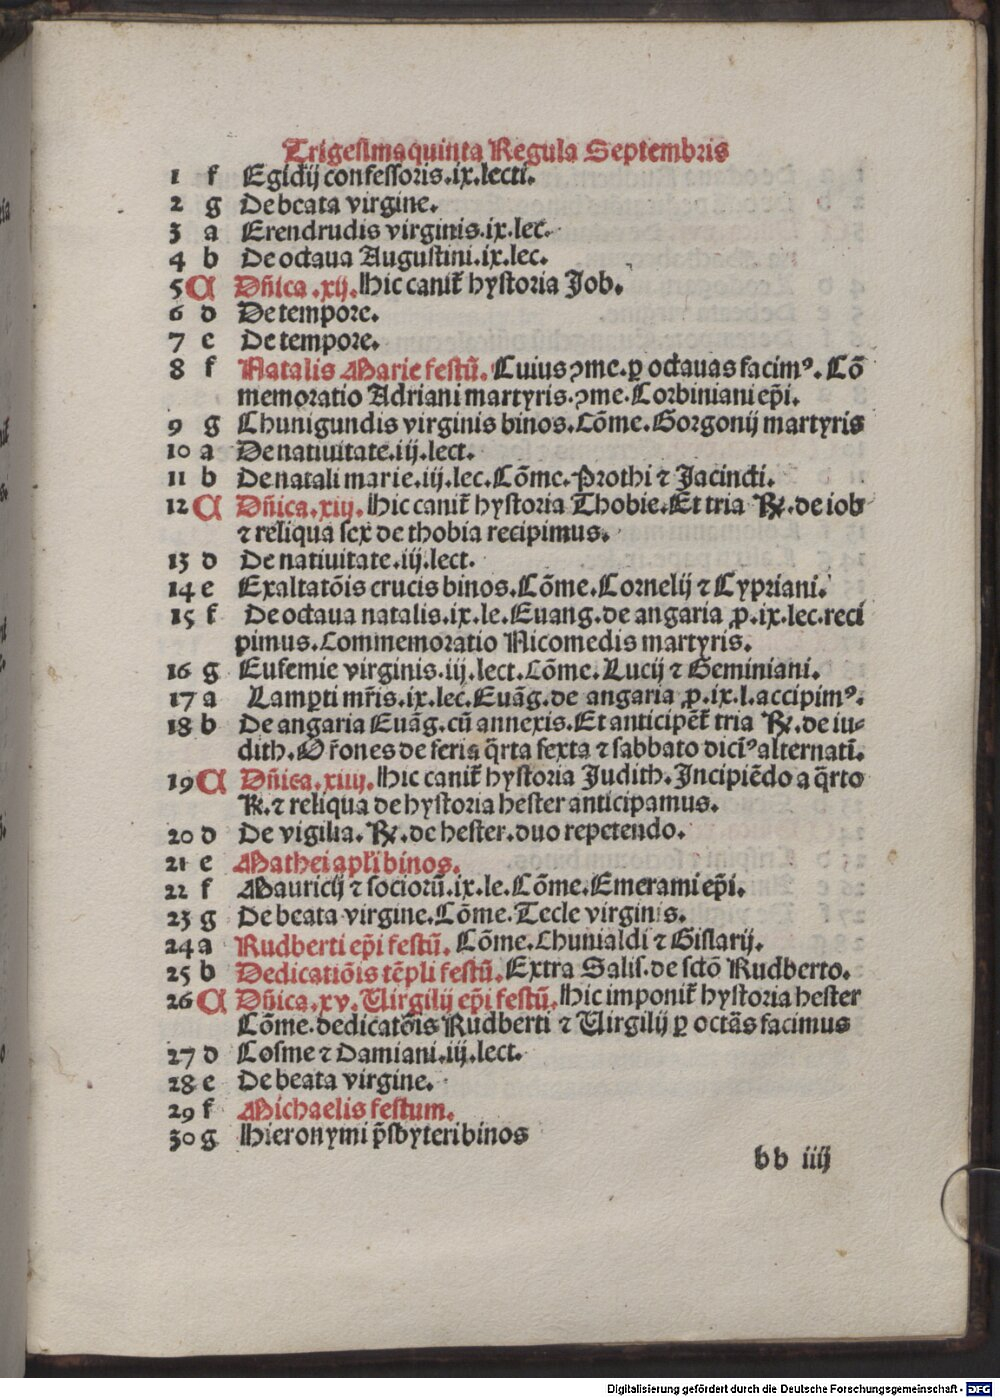 Trigesimaquinta Regula Septembris
1 f Egidij confessoris.ix.lecti.
2 g De beata virgine.
3 a Erendrudis virginis.ix.lec.
4 b De octaua Augustini.ix.lec.
5 A Dñica.xij.Hic canit̃ hystoria Job.
6 d De tempore.
7 e De tempore.
8 f Natalis Marie festũ.Cuius ꝯme.ꝑ octauas facimꝰ.Cõ
memoratio Adriani martyris.ꝯme.Corbiniani ep̃i.
9 g Chunigundis virginis binos.Cõme.Gorgonij martyris
10 a De natiuitate.iij.lect.
11 b De natali marie.iij.lec.Cõme.Prothi ⁊ Jacincti.
12 A Dñica.xiij.Hic canit̃ hystoria Thobie.Et tria ℟.de iob
⁊ reliqua sex de thobia recipimus.
13 d De natiuitate.iij.lect.
14 e Exaltatõis crucis binos.Cõme.Cornelij ⁊ Cypriani.
15 f De octaua natalis.ix.le.Euang.de angaria ꝓ.ix.lec.reci
pimus.Commemoratio Nicomedis martyris.
16 g Eufemie virginis.iij.lect.Cõme.Lucij ⁊ Geminiani.
17 a Lamꝑti mr̃is.ix.lec.Euãg.de angaria ꝓ.ix.l.accipimꝰ.
18 b De angaria Euãg.cũ annexis.Et anticipẽt̃ tria ℟.de iu-
dith.Or̃ones de feria q̃rta sexta ⁊ sabbato dicĩꝰ alternatĩ.
19 A Dñica.xiiij.Hic canit̃ hystoria Judith.Incipiẽdo a q̃rto
℟.⁊ reliqua de hystoria hester anticipamus.
20 d De vigilia.℟.de hester.duo repetendo.
21 e Mathei apl̃i binos.
22 f Mauricij ⁊ sociorũ.ix.le.Cõme.Emerami ep̃i.
23 g De beata virgine.Cõme.Tecle virginis.
24 a Rudberti ep̃i festũ.Cõme.Chunialdi ⁊ Gislarij.
25 b Dedicatiõis tẽpli festũ.Extra Salis.de sctõ Rudberto.
26 A Dñica.xv.Uirgilij ep̃i festũ.Hic imponit̃ hystoria hester
Cõme.dedicatõis Rudberti ⁊ Uirgilij ꝑ octãs facimus
27 d Cosme ⁊ Damiani.iij.lect.
28 e De beata virgine.
29 f Michaelis festum.
30 g Hieronymi p̃sbyteri binos
bb iiij
Digitalisierung gefördert durch die Deutsche Forschungsgemeinschaft - DFG